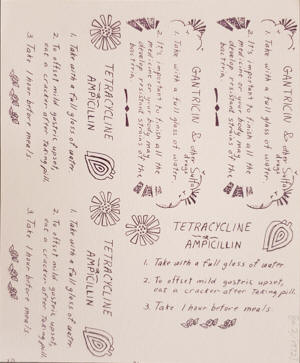 GANTRICIN & other Sulfa drugs
1. Take with a full glass of water.
2. It's important to finish all the
medicine or your body may
develop resistant strains of the
bacteria.
GANTRICIN & other Sulfa drugs
1. Take with a full glass of water.
2. It's important to finish all the
medicine or your body may
develop resistant strains of the
bacteria.
TETRACYCLINE
or
AMPICILLIN
1. Take with a full glass of water
2. To offset mild gastric upset,
eat a cracker after taking pill.
3. Take 1 hour before meals
TETRACYCLINE
or
AMPICILLIN
1. Take with a full glass of water
2. To offset mild gastric upset,
eat a cracker after taking pill.
3. Take 1 hour before meals
TETRACYCLINE
or
AMPICILLIN
1. Take with a full glass of water
2. To offset mild gastric upset,
eat a cracker after taking pill.
3. Take 1 hour before meals